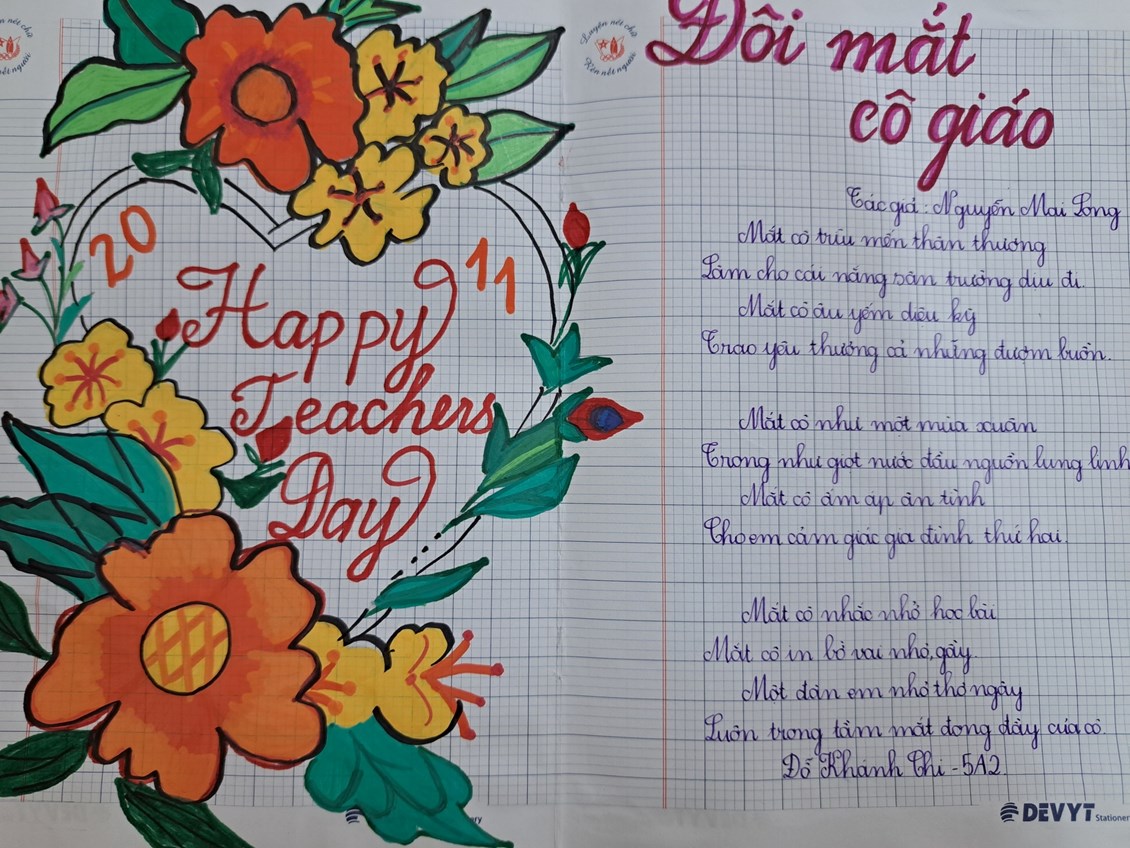 Luyện nét chữ
Rèn nết người
20
11
Happy
Teachers
Day
Luyện nét chữ
Rèn nết người
Đôi mắt
cô giáo
Tác giả: Nguyễn Mai Long
Mắt cô trìu mến thân thương
Làm cho cái nắng sân trường dịu đi.
Mắt cô âu yếm diệu kỳ
Trao yêu thương cả những đượm buồn.
Mắt cô như một mùa xuân
Trong như giọt nước đầu nguồn lung linh
Mắt cô ấm áp ân tình
Cho em cảm giác gia đình thứ hai.
Mắt cô nhắc nhở học bài
Mắt cô in bờ vai nhỏ, gầy.
Một đàn em nhỏ thơ ngây
Luôn trong tầm mắt đong đầy của cô.
Đỗ Khánh Chi - 5A2
DEVYT Stationer